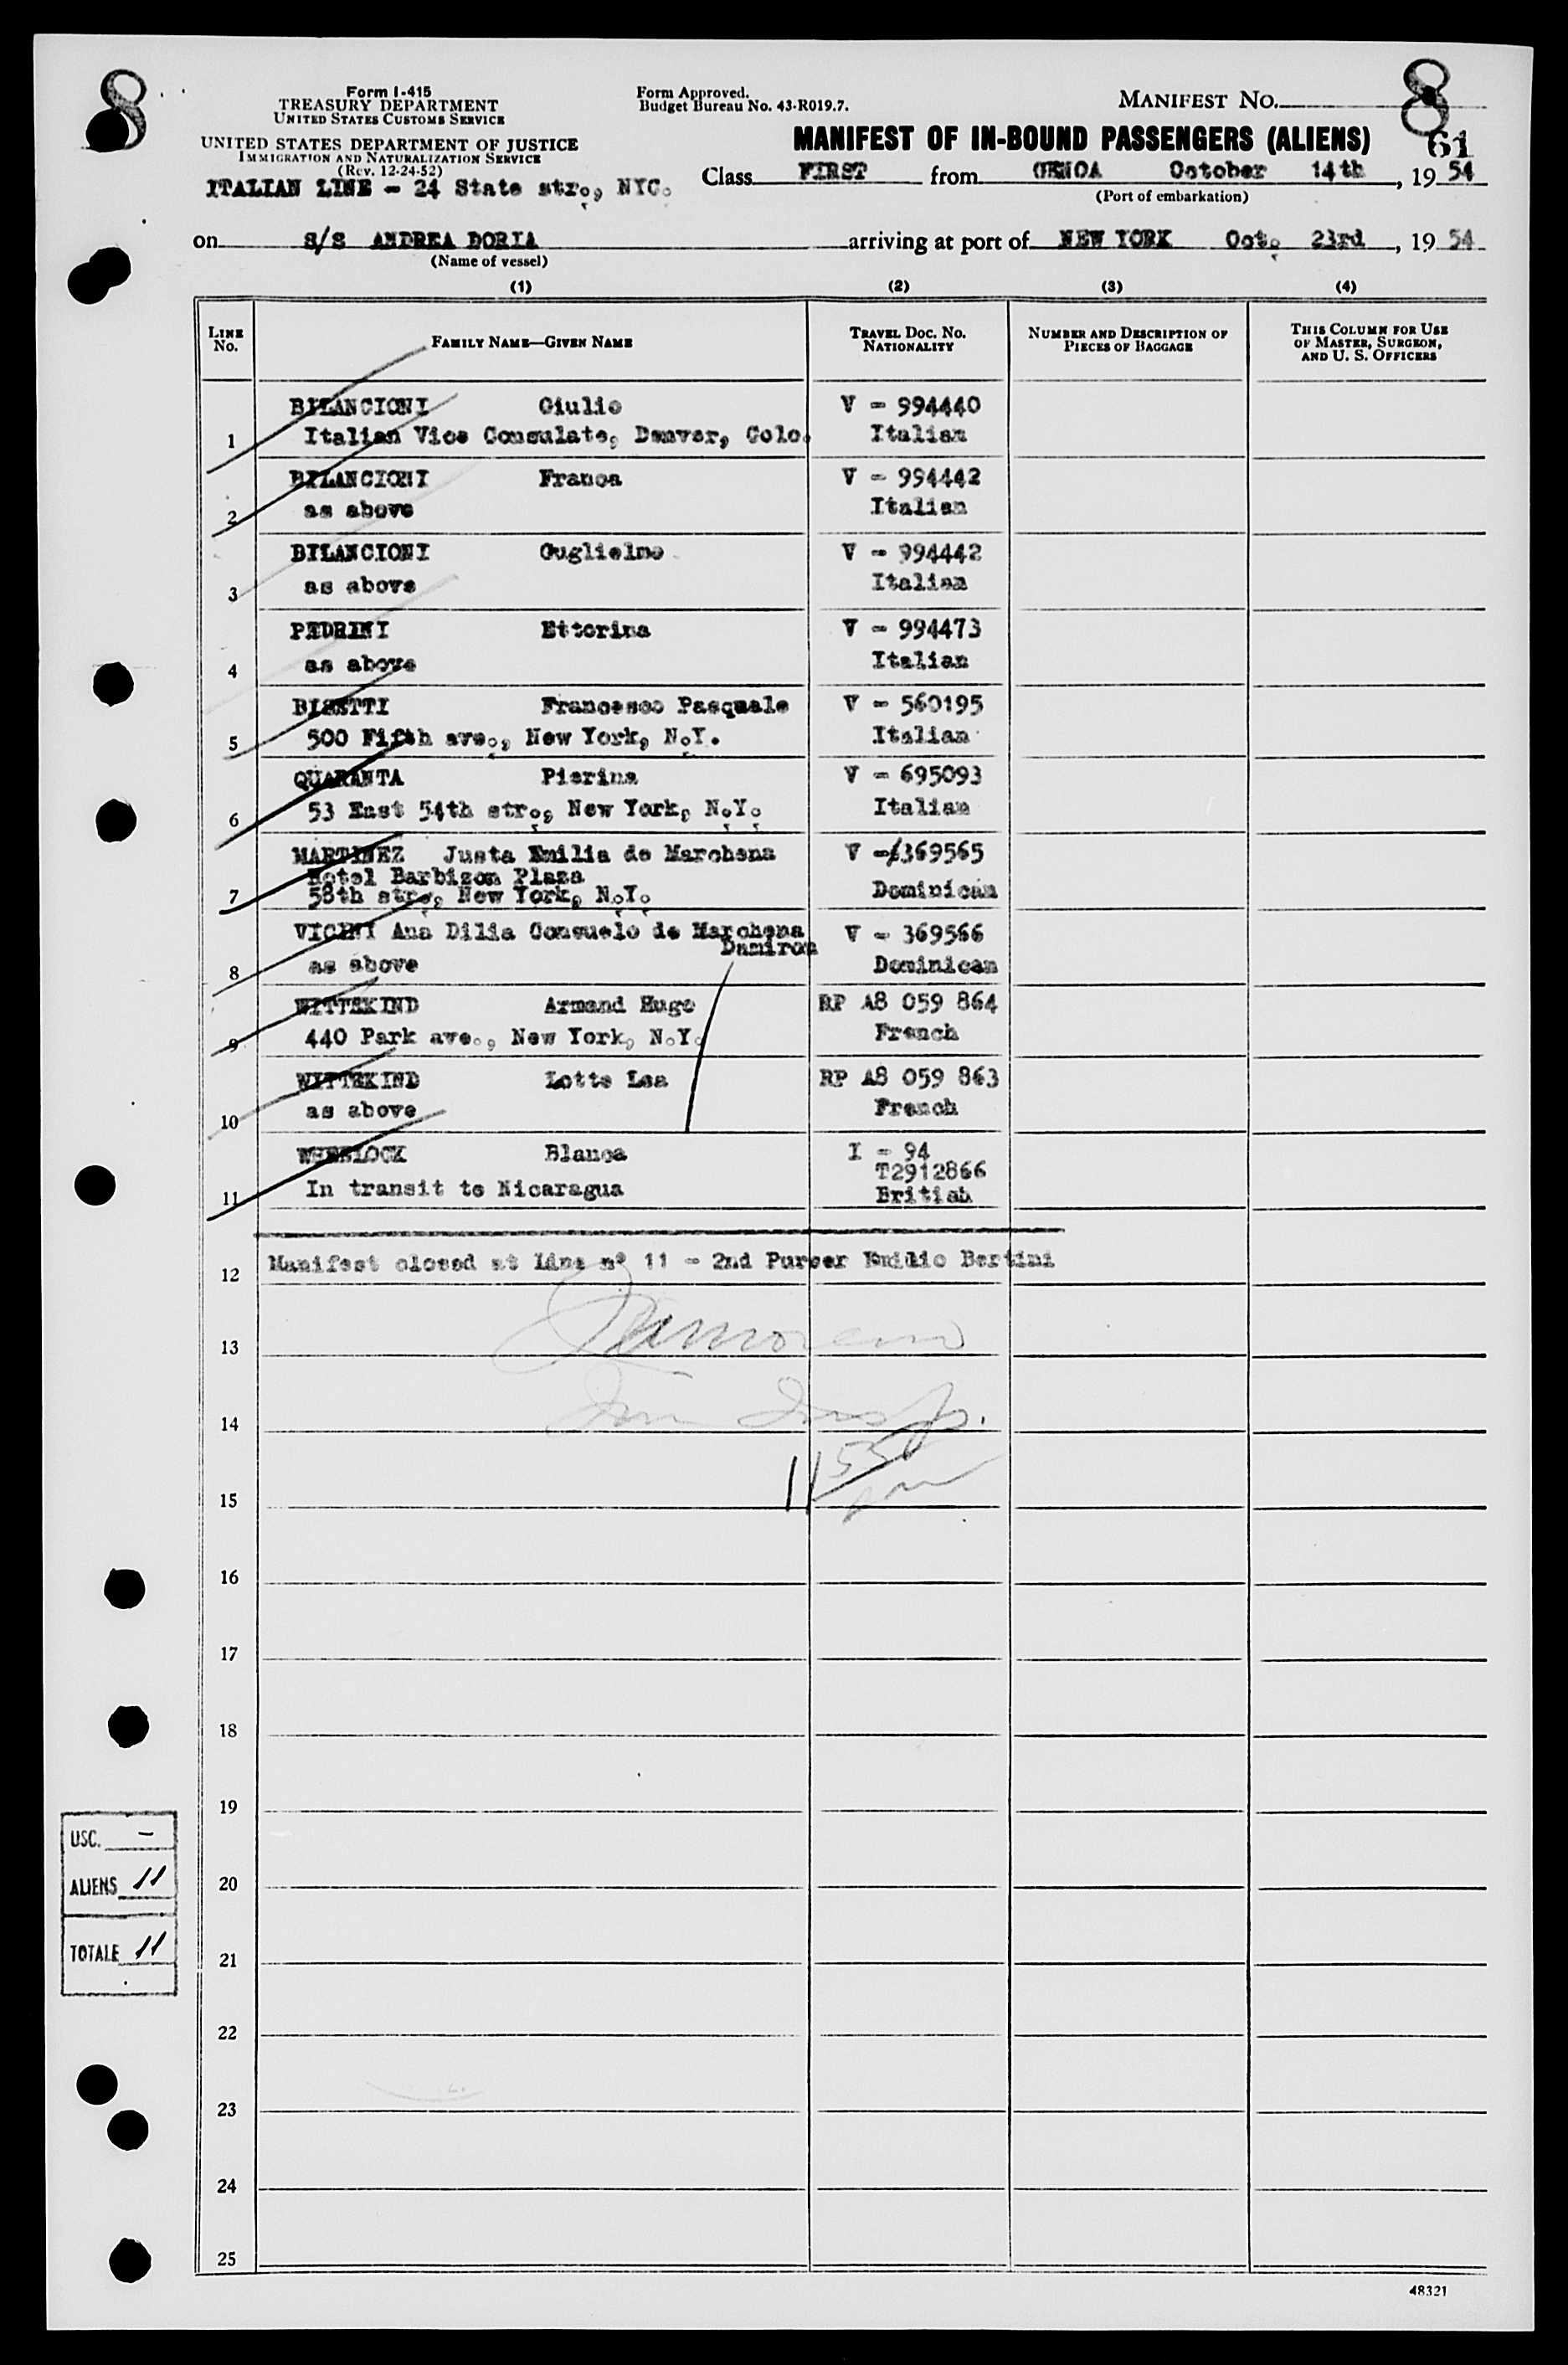 8
8
61
Form I-415
TREASURY DEPARTMENT
UNITED STATES CUSTOMS SERVICE
UNITED STATES DEPARTMENT OF JUSTICE
IMMIGRATION AND NATURALIZATION SERVICE
(Rev. 12-24-52)
ITALIAN LINE - 24 State str., NYC.
Form Approved.
Budget Bureau No. 43-R019.7.
MANIFEST NO.
MANIFEST OF IN-BOUND PASSENGERS (ALIENS)
Class FIRST from GENOA October 14th, 1954
(Port of embarkation)
on S/S ANDREA DORIA arriving at port of NEW YORK Oct. 23rd, 1954
(Name of vessel)
(1) (2) (3) (4)
LINE NO. FAMILY NAME—GIVEN NAME TRAVEL DOC. NO. NATIONALITY NUMBER AND DESCRIPTION OF PIECES OF BAGGAGE THIS COLUMN FOR USE OF MASTER, SURGEON, AND U. S. OFFICERS
BILANCIONI Giulio V - 994440
1 Italian Vice Consulate, Denver, Colo. Italian
BILANCIONI Franca V - 994442
2 as above Italian
BILANCIONI Guglielmo V - 994442
3 as above Italian
PEDRINI Ettorina V - 994473
4 as above Italian
BISETTI Francesco Pasquale V - 560195
5 500 Fifth ave., New York, N.Y. Italian
QUARANTA Pierina V - 695093
6 53 East 54th str., New York, N.Y. Italian
MARTINEZ Justa Emilia de Marchena V - 369565
Hotel Barbizon Plaza
7 58th str., New York, N.Y. Dominican
VICINI Ana Dilia Consuelo de Marchena V - 369566
Damiron
8 as above Dominican
WITTEKIND Armand Hugo RP A8 059 864
9 440 Park ave., New York, N.Y. French
WITTEKIND Lotte Lea RP A8 059 863
10 as above French
WHEELOCK Blanca I - 94
T2912866
11 In transit to Nicaragua British
12 Manifest closed at Line n° 11 - 2nd Purser Emidio Bertini
13
14 Imm Insp.
11
15
16
17
18
19
USC. -
20
ALIENS 11
21
TOTALE 11
22
23
24
25
48321